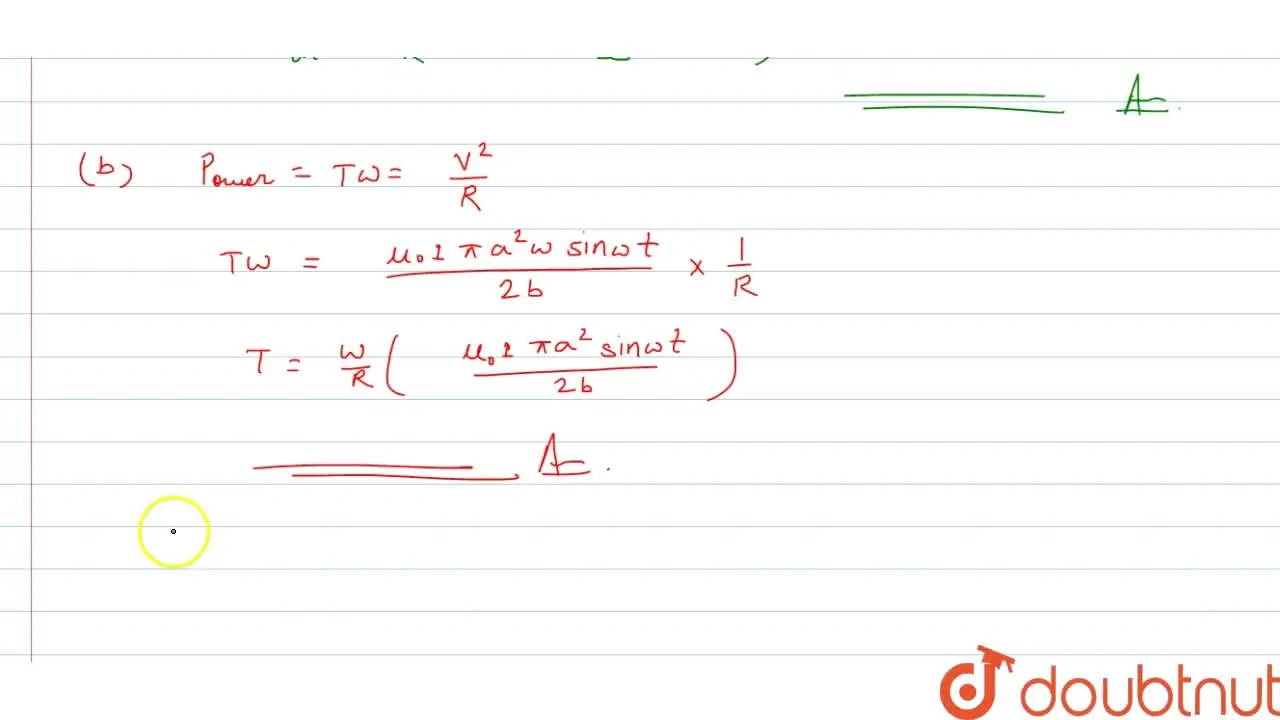 (b) Power = Tω = V²/R
Tω = μ₀I πa²ω sinωt / 2b × 1/R
T = ω/R ( μ₀I πa² sinωt / 2b )
A
doubtnut